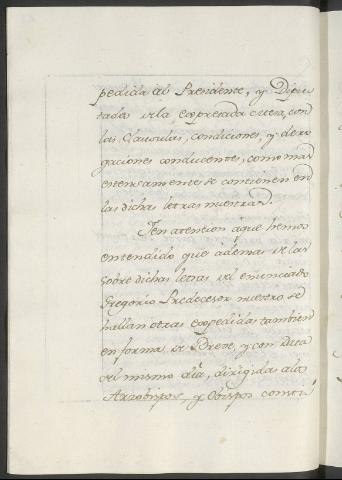 pedida al Presidente, y Dipu
tados de la expresada mesa, con
las Clausulas, condiciones, y dero
gaciones conducentes, como mas
extensamente se contienen en
las dichas letras nuestras.
Y en atention á que hemos
entendido que ademas de las
sobre dichas letras del enunciado
Gregorio Predecesor nuestro se
hallan otras expedidas tambien
en forma de Breve, y con Data
del mismo dia, dirigidas a los
Arzobispos, y Obispos consti